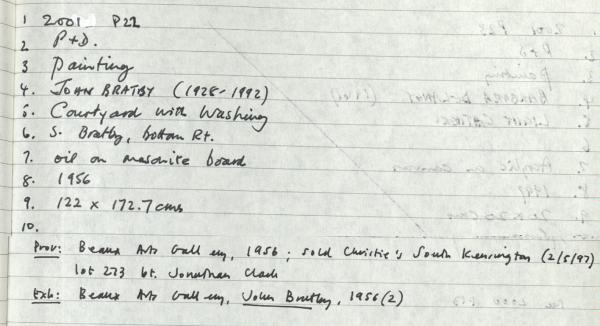 1 2001 P22
2 P+D.
3 Painting
4. JOHN BRATBY (1928-1992)
5. Courtyard with Washing
6. S. Bratby, bottom Rt.
7. oil on masonite board
8. 1956
9. 122 x 172.7 cms
10.
Prov: Beaux Arts Gallery, 1956; sold Christie's South Kensington (2/5/97)
lot 273 bt. Jonathan Clark
Exh: Beaux Arts Gallery, John Bratby, 1956 (2)